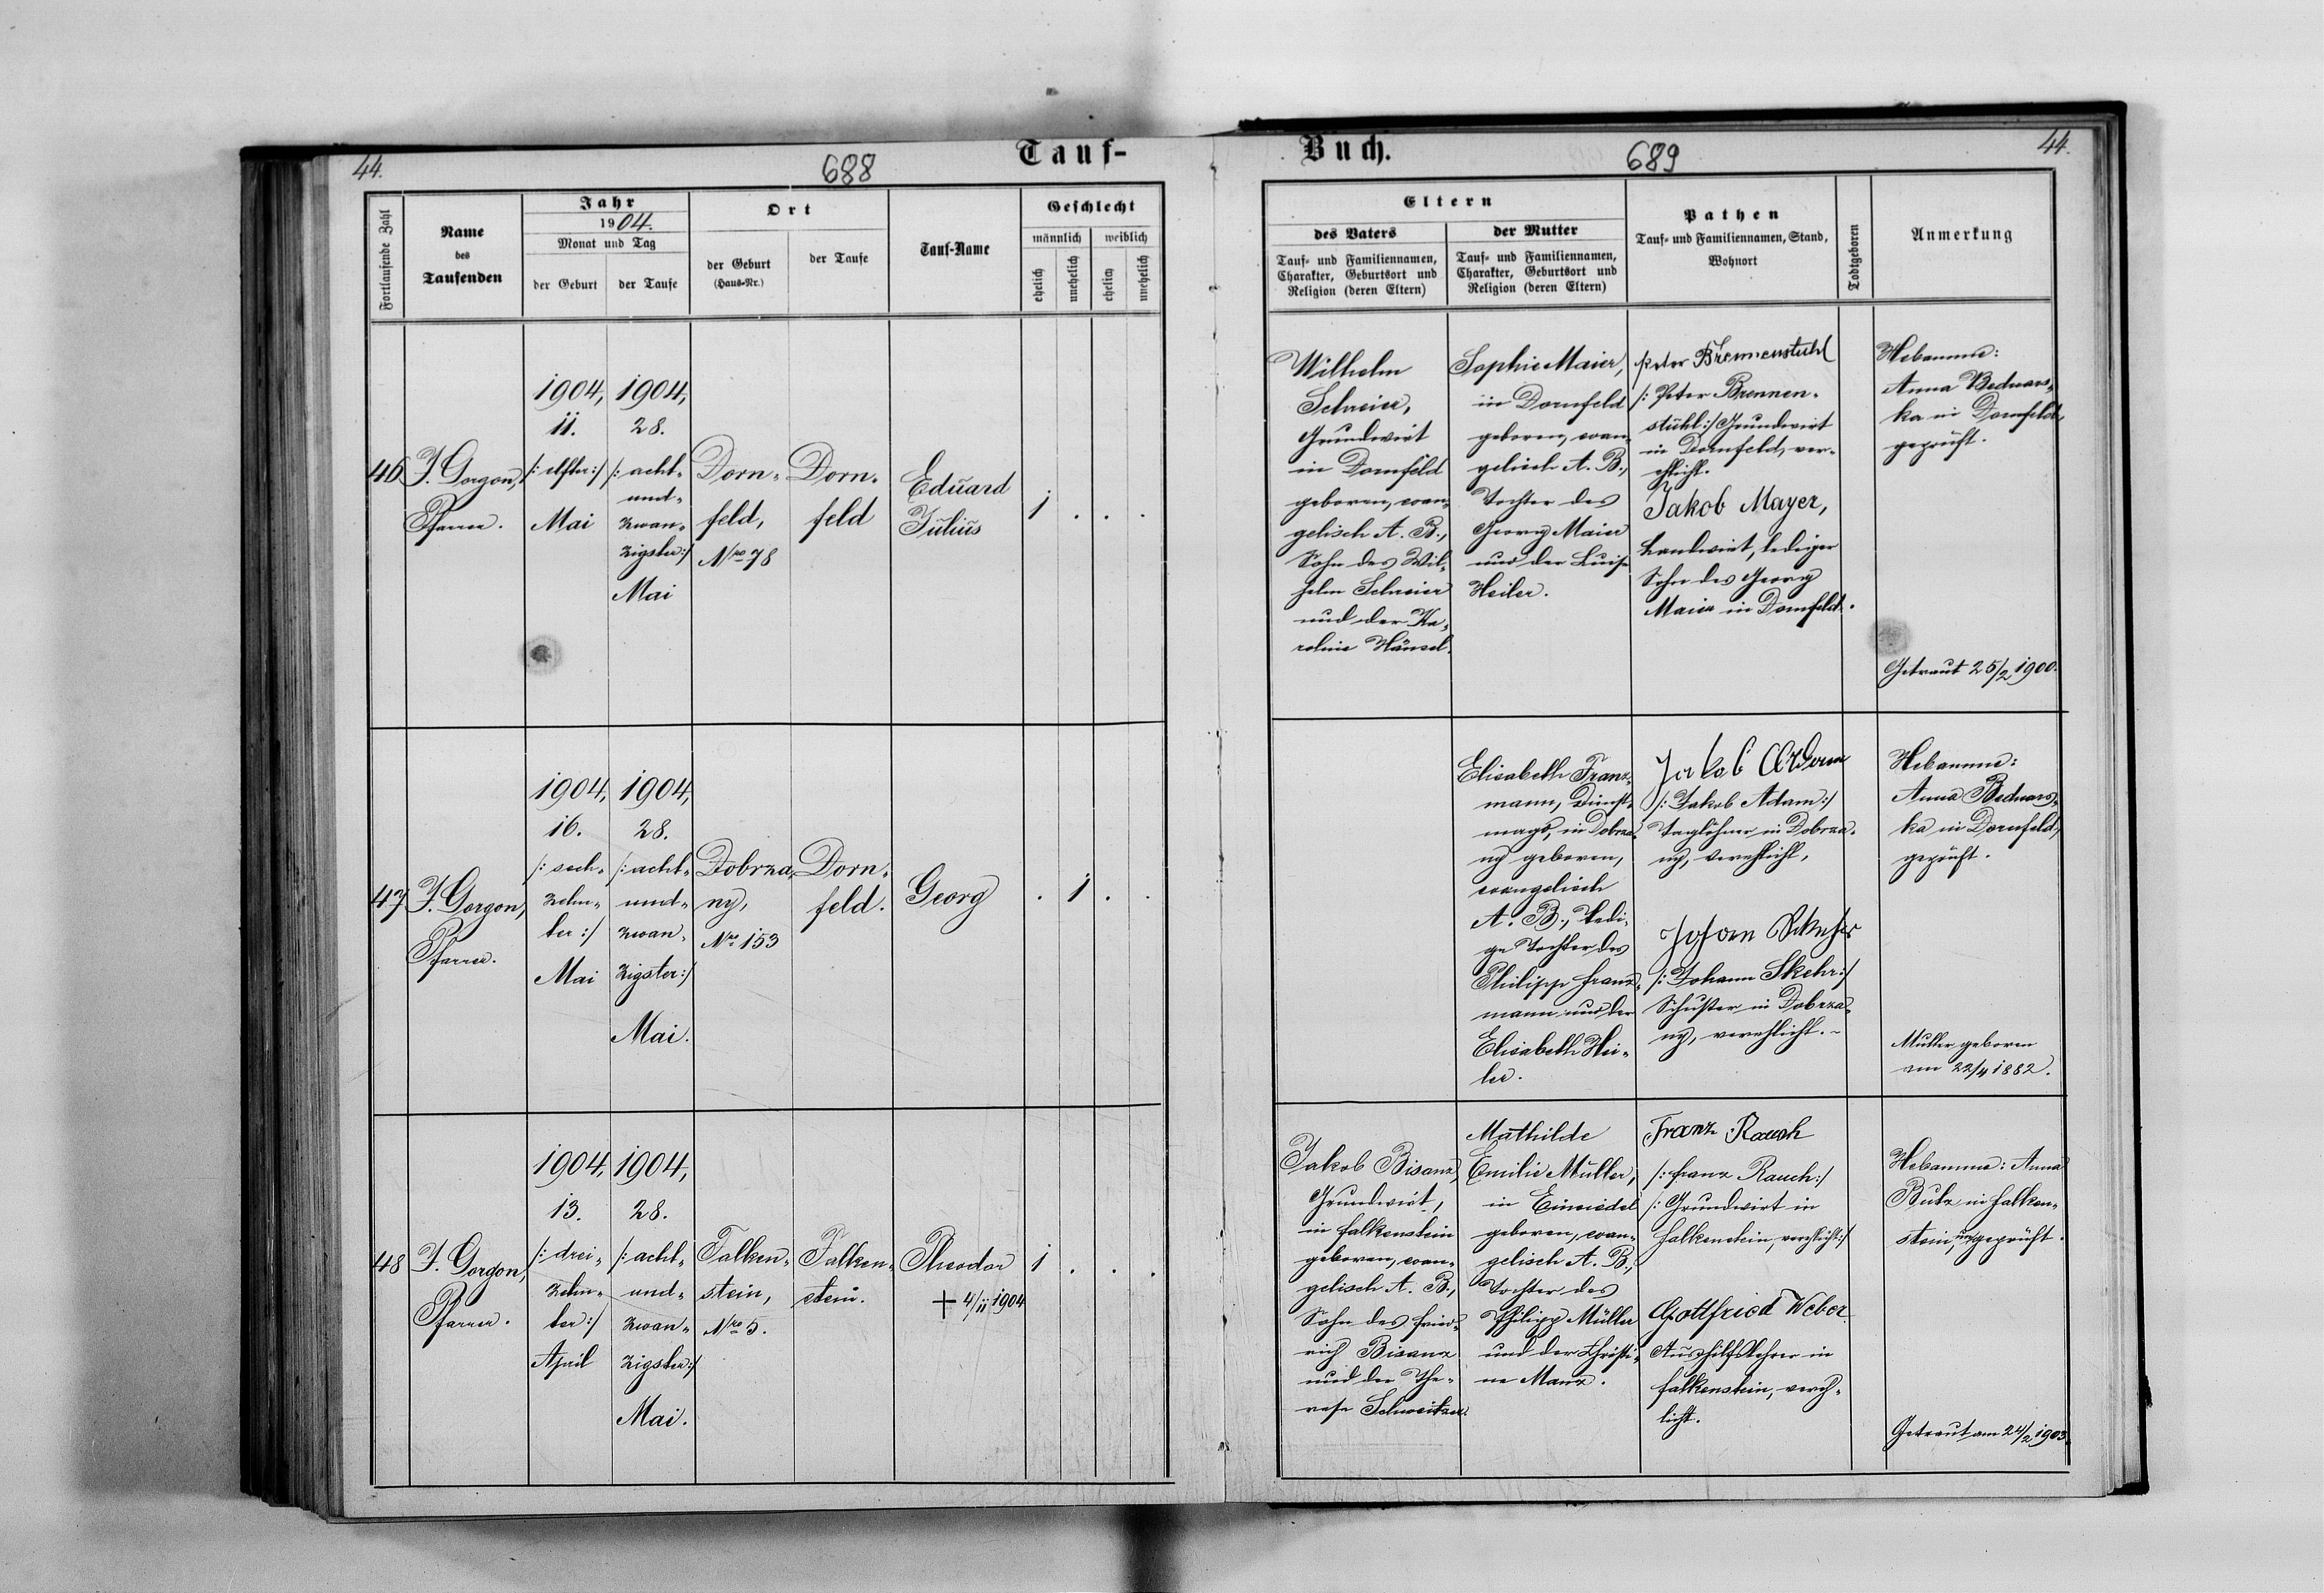 44.
688
Tauf-
Fortlaufende Zahl
Name
des
Taufenden
Jahr
1904.
Monat und Tag
der Geburt
der Taufe
Ort
der Geburt
(Haus-Nr.)
der Taufe
Tauf-Name
Geschlecht
männlich
weiblich
ehelich
unehelich
ehelich
unehelich
46
J. Gorgon,
Pfarrer.
1904,
11.
/: elfter :/
Mai
1904,
28.
/: acht-
und-
zwan-
zigster :/
Mai
Dorn-
feld,
Nro 78
Dorn-
feld
Eduard
Julius
1 . . .
47
J. Gorgon,
Pfarrer.
1904,
16.
/: sech-
zehn-
ter :/
Mai
1904,
28.
/: acht-
und-
zwan-
zigster :/
Mai.
Dobrza-
ny,
Nro 153
Dorn-
feld.
Georg
. 1 . .
48
J. Gorgon,
Pfarrer.
1904,
13.
/: drei-
zehn-
ter :/
April
1904,
28.
/: acht-
und-
zwan-
zigster :/
Mai.
Falken-
stein,
Nro 5.
Falken-
stein.
Theodor
+ 4/11 1904
1 . . .
Buch.
689
44.
Eltern
des Vaters
Tauf- und Familiennamen,
Charakter, Geburtsort und
Religion (deren Eltern)
der Mutter
Tauf- und Familiennamen,
Charakter, Geburtsort und
Religion (deren Eltern)
Pathen
Tauf- und Familiennamen, Stand,
Wohnort
Todtgeboren
Anmerkung
Wilhelm
Schreier,
Grundwirt
in Dornfeld
geboren, evan-
gelisch A. B.,
Sohn des Wil-
helm Schreier
und der Ka-
roline Hänsel.
Sophie Maier,
in Dornfeld
geboren, evan-
gelisch A. B.,
Tochter des
Georg Maier
und der Luise
Heiler.
Peter Brennenstuhl
/: Peter Brennen-
stuhl :/ Grundwirt
in Dornfeld, ver-
ehlicht.
Jakob Mayer,
Landwirt, lediger
Sohn des Georg
Maier in Dornfeld.
Hebamme:
Anna Bednars-
ka in Dornfeld,
geprüft.
Getraut 25/2 1900.
Elisabeth Franz-
mann, Dienst-
magd, in Dobrza-
ny geboren,
evangelisch
A. B., ledi-
ge Tochter des
Philipp Franz-
mann und der
Elisabeth Hei-
ler.
Jakob Adam
/: Jakob Adam :/
Taglöhner in Dobrza-
ny, verehlicht,
Johann Skehr
/: Johann Skehr :/
Schuster in Dobrza-
ny, verehlicht. ~
Hebamme:
Anna Bednars-
ka in Dornfeld,
geprüft.
Mutter geboren
am 22/4 1882.
Jakob Bisanz,
Grundwirt,
in Falkenstein
geboren, evan-
gelisch A. B.,
Sohn des Fried-
rich Bisanz
und der The-
rese Schweitzer.
Mathilde
Emilie Müller,
in Einsiedel
geboren, evan-
gelisch A. B.,
Tochter des
Philipp Müller
und der Christi-
ne Manz.
Franz Rauch
/: Franz Rauch :/
/: Grundwirt in
Falkenstein, verehlicht :/
Gottfried Weber
Aushilfslehrer in
Falkenstein, vereh-
licht.
Hebamme: Anna
Butz in Falken-
stein, ungeprüft.
Getraut am 24/2 1903.